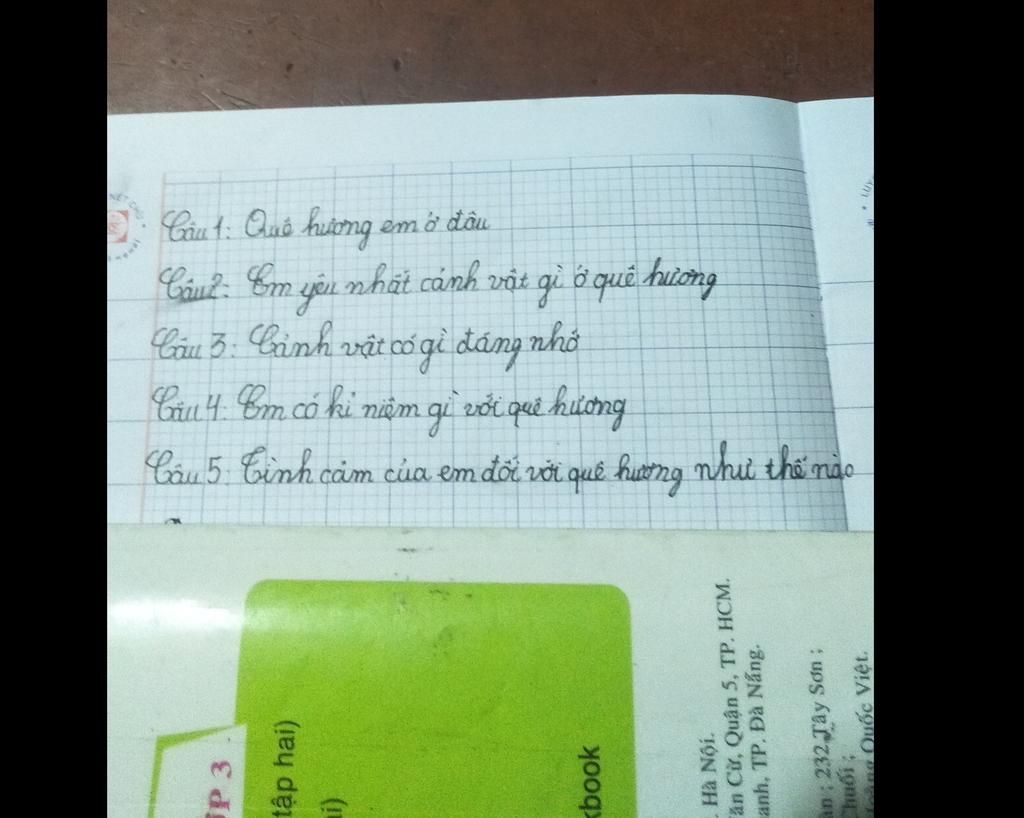 Câu 1: Quê hương em ở đâu
Câu 2: Em yêu nhất cảnh vật gì ở quê hương
Câu 3: Cảnh vật có gì đáng nhớ
Câu 4: Em có kỉ niệm gì với quê hương
Câu 5: Tình cảm của em đối với quê hương như thế nào
P 3
tập hai)
kbook
Hà Nội.
ăn Cừ, Quận 5, TP. HCM.
anh, TP. Đà Nẵng.
232 Tây Sơn ;
Chuối ;
Hoàng Quốc Việt.